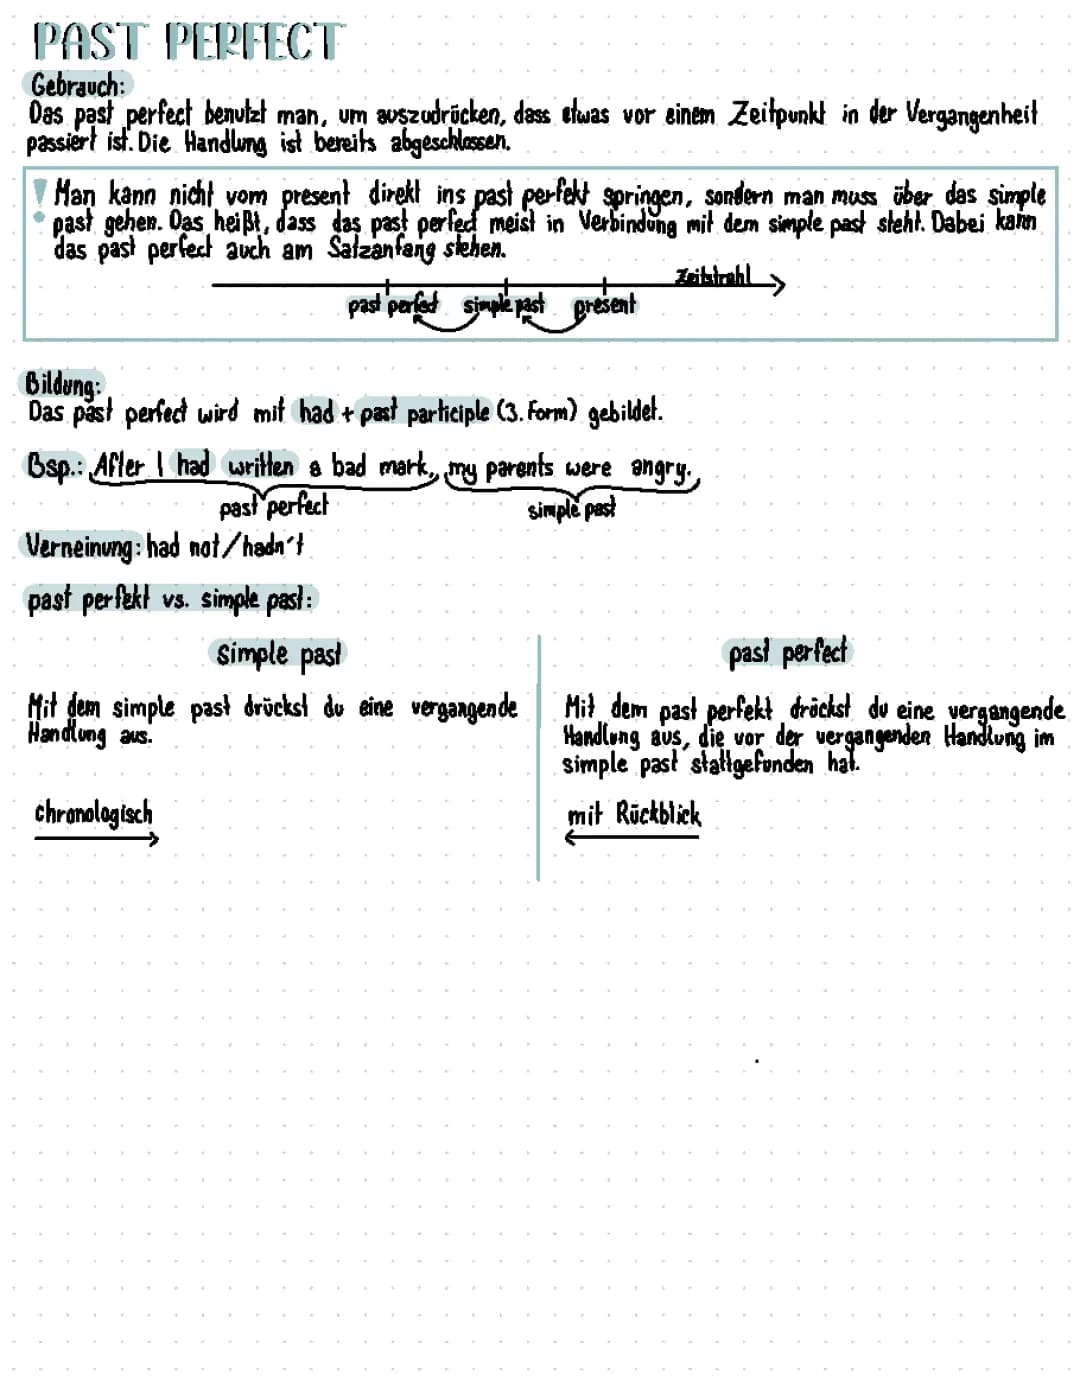 PAST PERFECT
Gebrauch:
Das past perfect benutzt man, um auszudrücken, dass etwas vor einem Zeitpunkt in der Vergangenheit
passiert ist. Die Handlung ist bereits abgeschlossen.
! Man kann nicht vom present direkt ins past perfekt springen, sondern man muss über das simple
past gehen. Das heißt, dass das past perfect meist in Verbindung mit dem simple past steht. Dabei kann
das past perfect auch am Satzanfang stehen.
Zeitstrahl
past perfect simple past present
Bildung:
Das past perfect wird mit had + past participle (3. Form) gebildet.
Bsp.: After I had written a bad mark, my parents were angry.
past perfect simple past
Verneinung: had not/hadn't
past perfekt vs. simple past:
simple past
Mit dem simple past drückst du eine vergangende
Handlung aus.
chronologisch
past perfect
Mit dem past perfekt drückst du eine vergangende
Handlung aus, die vor der vergangenden Handlung im
simple past stattgefunden hat.
mit Rückblick